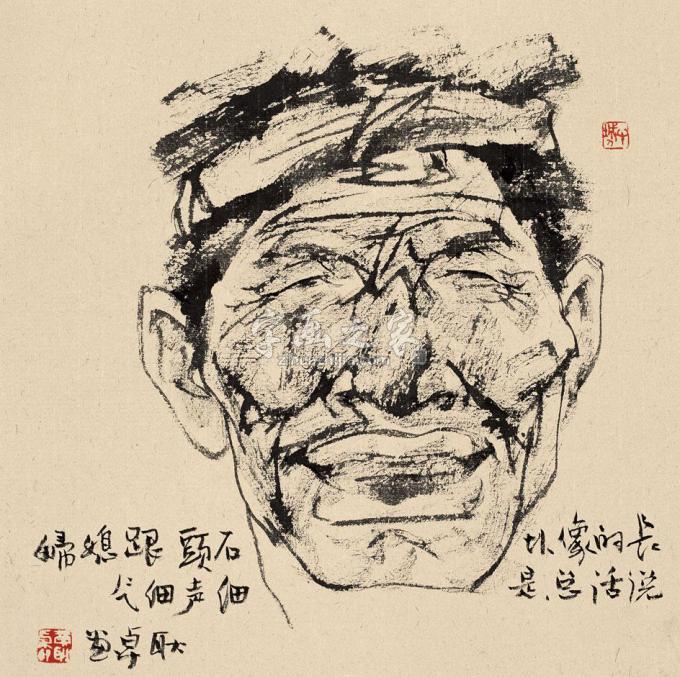 长的像块石頭跟媳婦
说话总是细声细气
耿卓画
字画之家
zihuazhijia.com